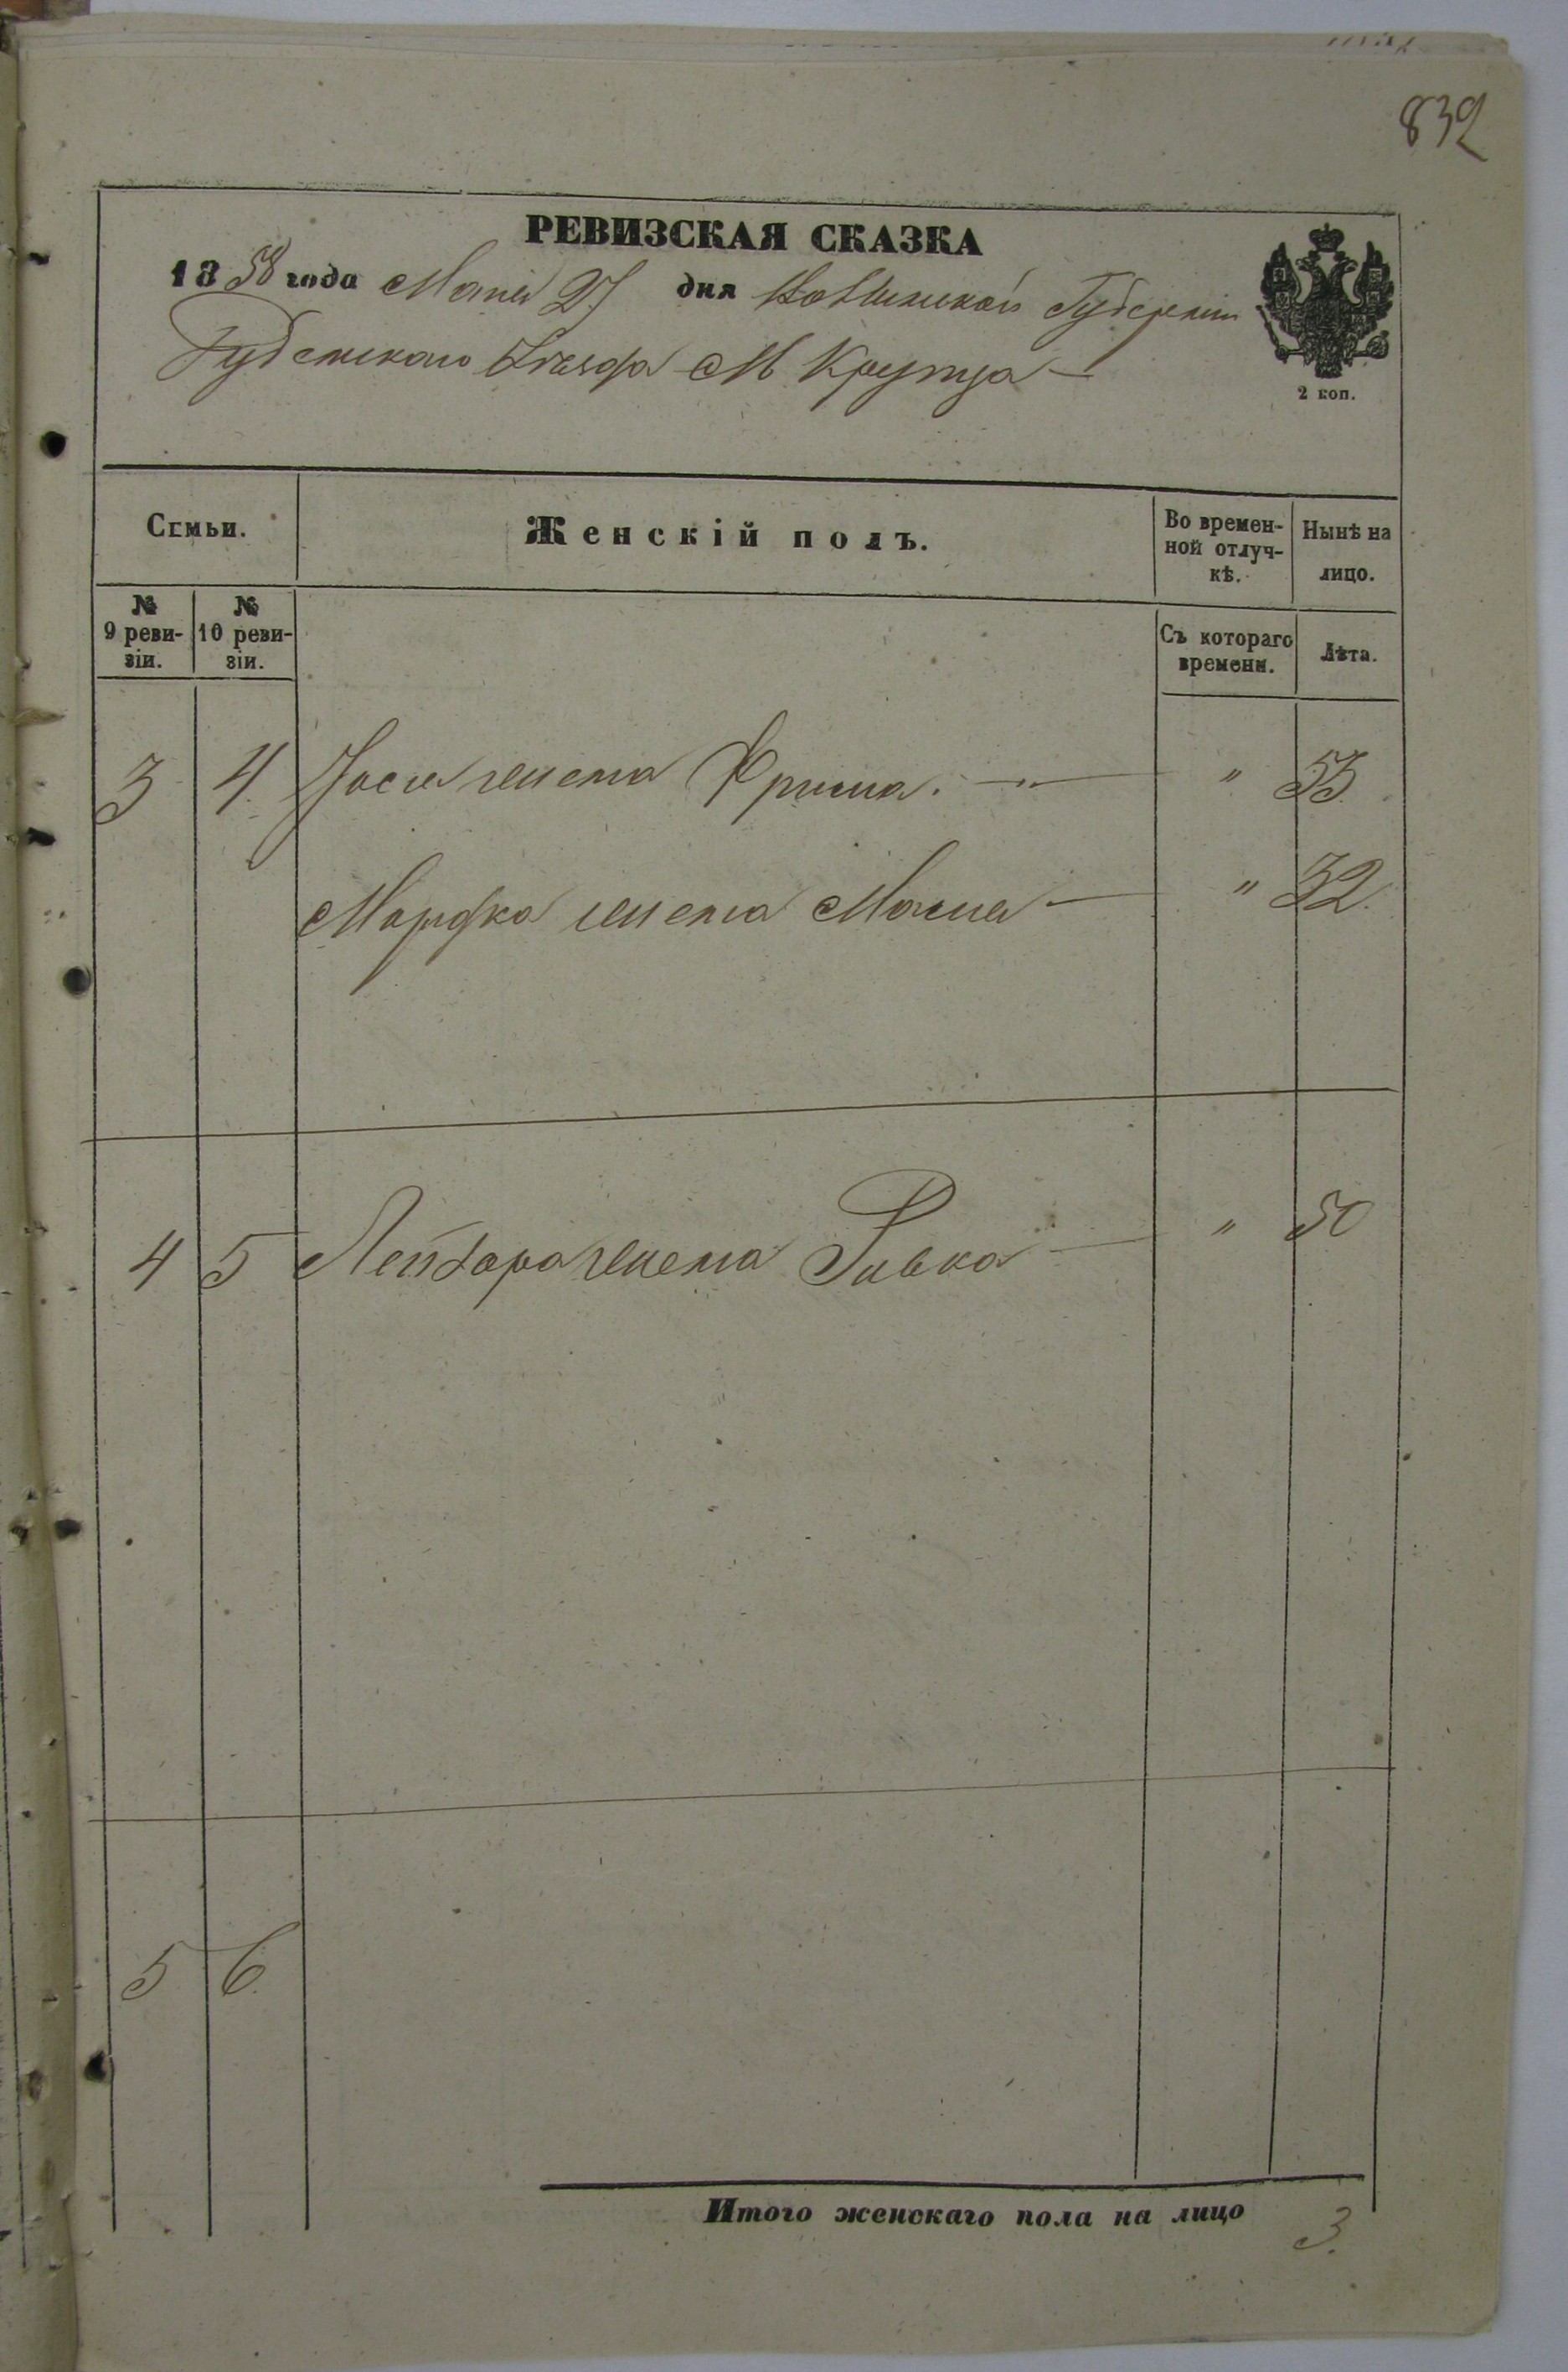 832
РЕВИЗСКАЯ СКАЗКА
1858 года Маия 27 дня Волынской Губернии
уезда М Крупца
2 коп.
Семьи.
Женскій полъ.
Во времен-
ной отлуч-
кѣ.
Нынѣ на
лицо.
№
9 реви-
зіи.
№
10 реви-
зіи.
Съ котораго
времени.
Лѣта.
3 4. Іося жена Фрима. — " 53.
Мордка жена Мася — " 32.
4 5 Лейзора жена Ривка — " 50
5 6.
Итого женскаго пола на лицо 3.